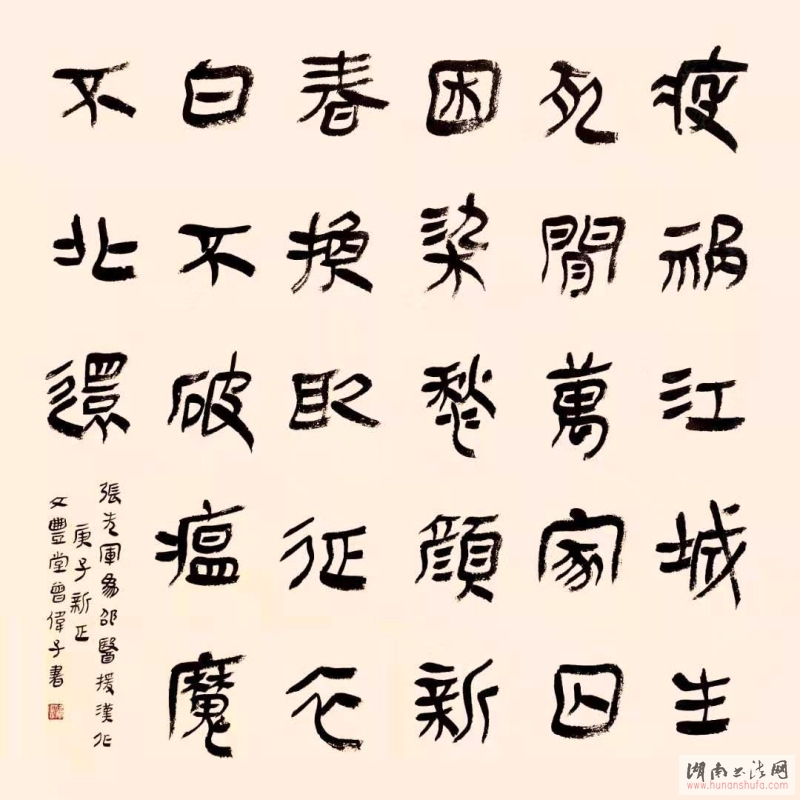 疫祸江城生
死間萬家囚
困染愁顔新
春換取征衣
白不破瘟魔
不北還
張先軍為邵醫援漢作
庚子新正
文豐堂曾偉子書
湖南书法网
www.hunanshufa.com